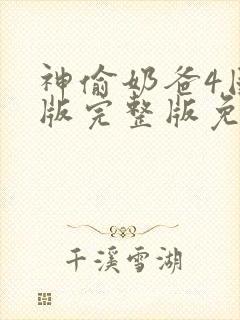 神偷奶爸4
版完整版免
千溪雪湖